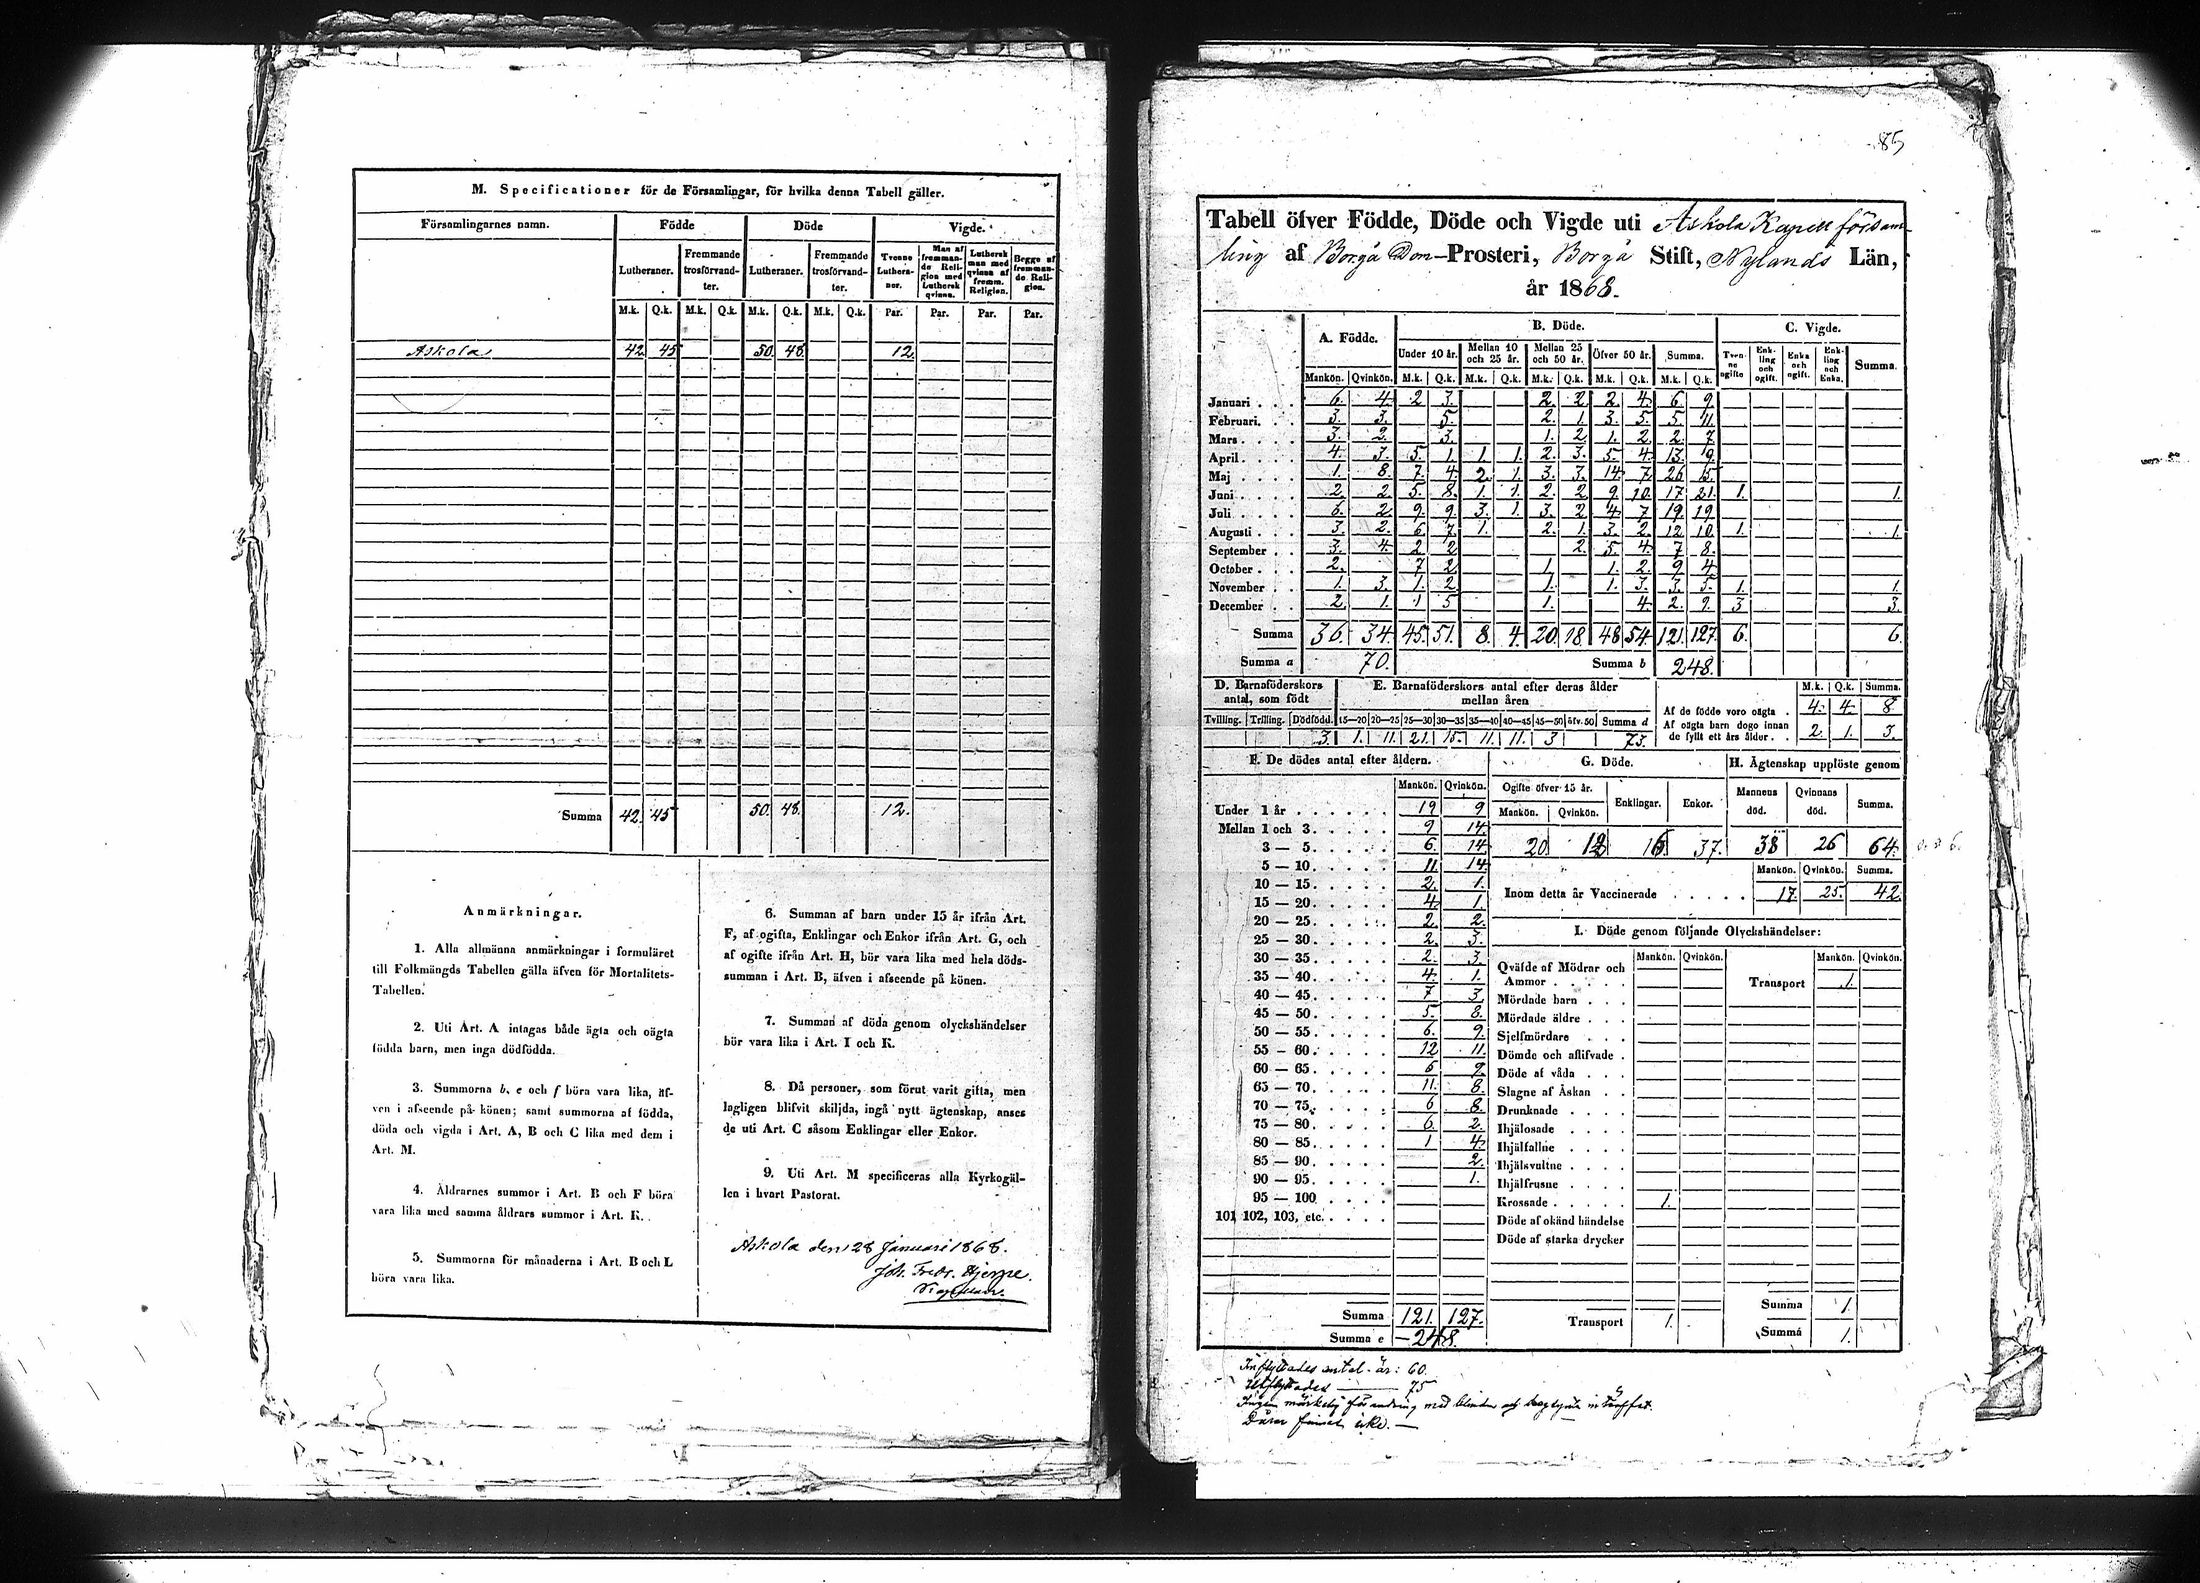 M. Specificationer för de Församlingar, för hvilka denna Tabell gäller.
Församlingarnes namn. Födde Döde Vigde.
Lutheraner. Fremmande trosförvandter. Lutheraner. Fremmande trosförvandter. Tvenne Lutheraner. Man af fremmande Religion med Luthersk qvinna. Luthersk man med qvinna af fremm. Religion. Begge af fremmande Religion.
M.k. Q.k. M.k. Q.k. M.k. Q.k. M.k. Q.k. Par. Par. Par. Par.
Askola 42 45 50. 48. 12.
Summa 42. 45 50. 48. 12.
Anmärkningar.
1. Alla allmänna anmärkningar i formuläret
till Folkmängds Tabellen gälla äfven för Mortalitets-
Tabellen.
2. Uti Art. A intagas både ägta och oägta
födda barn, men inga dödfödda.
3. Summorna b, e och f böra vara lika, äf-
ven i afseende på könen; samt summorna af födda,
döda och vigda i Art. A, B och C lika med dem i
Art. M.
4. Åldrarnes summor i Art. B och F böra
vara lika med samma åldrars summor i Art. K.
5. Summorna för månaderna i Art. B och L
böra vara lika.
6. Summan af barn under 15 år ifrån Art.
F, af ogifta, Enklingar och Enkor ifrån Art. G, och
af ogifte ifrån Art. H, bör vara lika med hela döds-
summan i Art. B, äfven i afseende på könen.
7. Summan af döda genom olyckshändelser
bör vara lika i Art. I och K.
8. Då personer, som förut varit gifta, men
lagligen blifvit skiljda, ingå nytt ägtenskap, anses
de uti Art. C såsom Enklingar eller Enkor.
9. Uti Art. M specificeras alla Kyrkogäl-
len i hvart Pastorat.
Askola den 28 Januari 1868.
Joh. Fredr. Hjerpe.
85
Tabell öfver Födde, Döde och Vigde uti Askola Kapell försam-
ling af Borgå Dom-Prosteri, Borgå Stift, Nylands Län,
år 1868.
A. Födde. B. Döde. C. Vigde.
Under 10 år. Mellan 10 och 25 år. Mellan 25 och 50 år. Öfver 50 år. Summa. Tvenne ogifte Enkling och ogift. Enka och ogift. Enkling och Enka. Summa.
Mankön. Qvinkön. M.k. Q.k. M.k. Q.k. M.k. Q.k. M.k. Q.k. M.k. Q.k.
Januari 6. 4. 2 3. 2. 2 2. 4. 6. 9.
Februari. 3. 3. 5. 2. 1. 3. 5. 5. 11.
Mars 3. 2. 3. 1. 2 1. 2. 2. 7.
April 4. 3. 5. 1. 1. 1. 2. 3. 5. 4. 13. 9.
Maj 1. 8. 7. 4. 2. 1. 3. 3. 14. 7. 26 15.
Juni 2. 2. 5. 8. 1. 1. 2. 2 9. 10. 17. 21. 1. 1.
Juli 6. 2 9. 9. 3. 1. 3. 2 4. 7 19. 19.
Augusti 3. 2. 6. 7. 1. 2. 1. 3. 2. 12. 10. 1. 1.
September 3. 4. 2 2. 2. 5. 4. 7 8.
October 2. 7 2 1. 1. 2. 9 4.
November 1. 3. 1. 2. 1. 1. 3. 3. 5. 1. 1.
December 2. 1. 1 5 1. 4. 2. 9. 3 3.
Summa 36. 34. 45. 51. 8. 4. 20 18. 48 54. 121. 127. 6. 6.
Summa a 70. Summa b 248.
D. Barnaföderskors antal, som födt E. Barnaföderskors antal efter deras ålder mellan åren M.k. Q.k. Summa.
Tvilling. Trilling. Dödfödd. 15—20 20—25 25—30 30—35 35—40 40—45 45—50 öfv. 50 Summa d
3. 1. 11. 21. 15. 11. 11. 3 73.
Af de födde voro oägta 4. 4. 8.
Af oägta barn dogo innan
de fyllt ett års ålder. 2. 1. 3.
F. De dödes antal efter åldern. G. Döde. H. Ägtenskap upplöste genom
Mankön. Qvinkön. Ogifte öfver 15 år. Enklingar. Enkor. Mannens död. Qvinnans död. Summa.
Mankön. Qvinkön.
20. 37. 38 26 64.
Mankön. Qvinkön. Summa.
Inom detta år Vaccinerade 17. 25. 42.
Under 1 år 19 9
Mellan 1 och 3. 9 14.
3 — 5. 6. 14
5 — 10. 11. 14
10 — 15. 2. 1.
15 — 20. 4. 1.
20 — 25. 2. 2.
25 — 30. 2. 3.
30 — 35. 2. 3.
35 — 40. 4. 1.
40 — 45. 7 3.
45 — 50. 5. 8.
50 — 55. 6. 9.
55 — 60. 12 11.
60 — 65. 6 9.
65 — 70. 11. 8.
70 — 75. 6 8.
75 — 80. 6. 2.
80 — 85. 1 4.
85 — 90. 2.
90 — 95. 1.
95 — 100
101, 102, 103, etc.
Summa 121. 127.
Summa e 248.
I. Döde genom följande Olyckshändelser:
Mankön. Qvinkön. Mankön. Qvinkön.
Qväfde af Mödrar och
Ammor
Mördade barn
Mördade äldre
Sjelfmördare
Dömde och aflifvade
Döde af våda
Slagne af Åskan
Drunknade
Ihjälosade
Ihjälfallne
Ihjälsvultne
Ihjälfrusne
Krossade 1.
Döde af okänd händelse
Döde af starka drycker
Transport 1.
Transport 1.
Summa 1.
Summa 1.
Inflyttades antal är: 60.
Utflyttades — 75
Döfva finnas icke. —